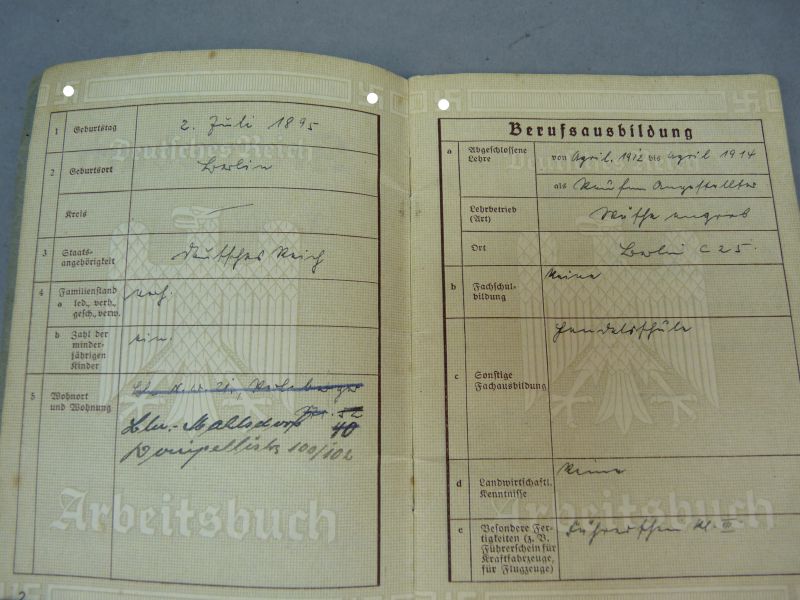 1 Geburtstag 2. Juli 1895
Deutsches Reich
2 Geburtsort Berlin
Kreis —
3 Staats-
angehörigkeit Deutsches Reich
4 Familienstand
a led., verh.,
gesch., verw. verh.
b Zahl der
minder-
jährigen
Kinder ein.
5 Wohnort
und Wohnung
Bln.-Mahlsdorf
40
100/102
Arbeitsbuch
Berufsausbildung
a Abgeschlossene
Lehre von April. 1912 bis April 1914
als Kaufm Angestellter
Lehrbetrieb
(Art) Wäsche engros
Ort Berlin C 25.
b Fachschul-
bildung Keine
c Sonstige
Fachausbildung Handelsschule
d Landwirtschaftl.
Kenntnisse Keine
e Besondere Fer-
tigkeiten (z. B.
Führerschein für
Kraftfahrzeuge,
für Flugzeuge) Führerschein Kl. III.
Arbeitsbuch
2